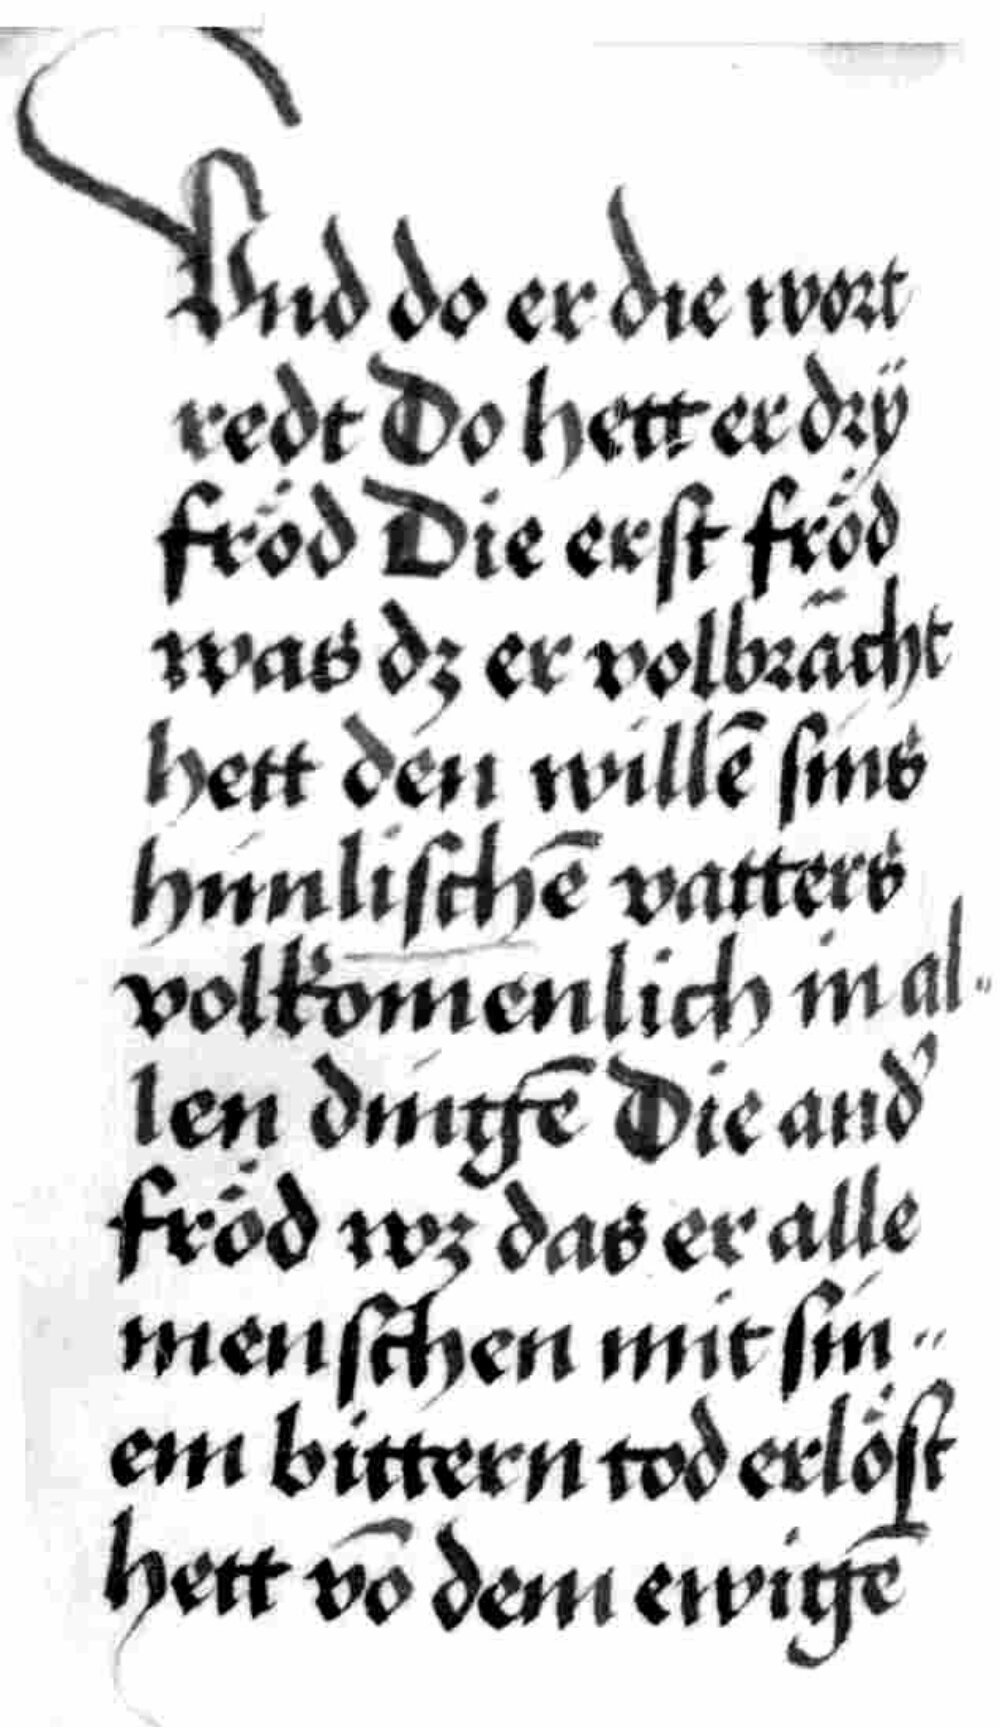 Vnd do er die wort
redt Do hett er drÿ
fröd Die erst fröd
was dz er volbrächt
hett den willē sins
himlischē vatters
volkomenlich in al„
len dingē Die and'
fröd wz das er alle
menschen mit sin„
em bittern tod erlöst
hett vō dem ewigē